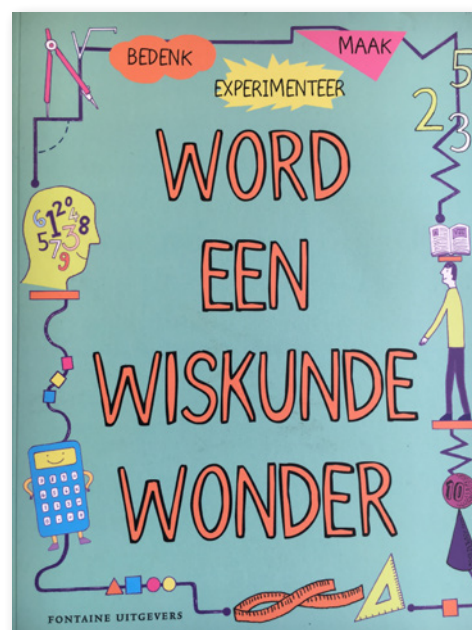 BEDENK
MAAK
EXPERIMENTEER
5
2
3
WORD
EEN
WISKUNDE
WONDER
FONTAINE UITGEVERS